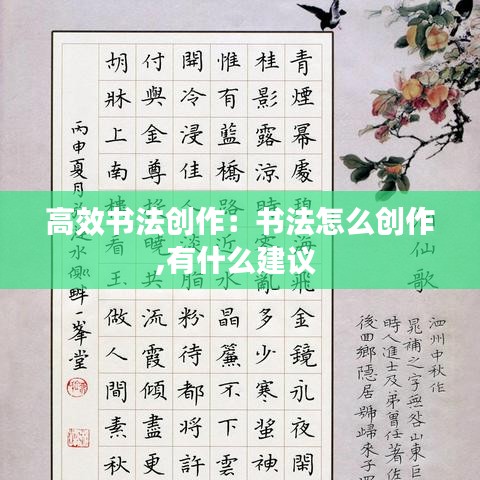 高效书法创作：书法怎么创作
,有什么建议
青煙冪處碧海飛金鏡永夜閒
桂影露涼亂多少寒螿神
惟有藍橋晶簾不下雲
開冷浸佳脂粉待都將許
付與金尊流霞傾盡更
胡牀上南樓看玉做人間素秋
丙申夏月
之水側畔一峯堂
仙歌
泗州中秋作
晁補之字無咎山東巨
時人進士及弟曾任著佐
後回鄉隱居號歸來子四